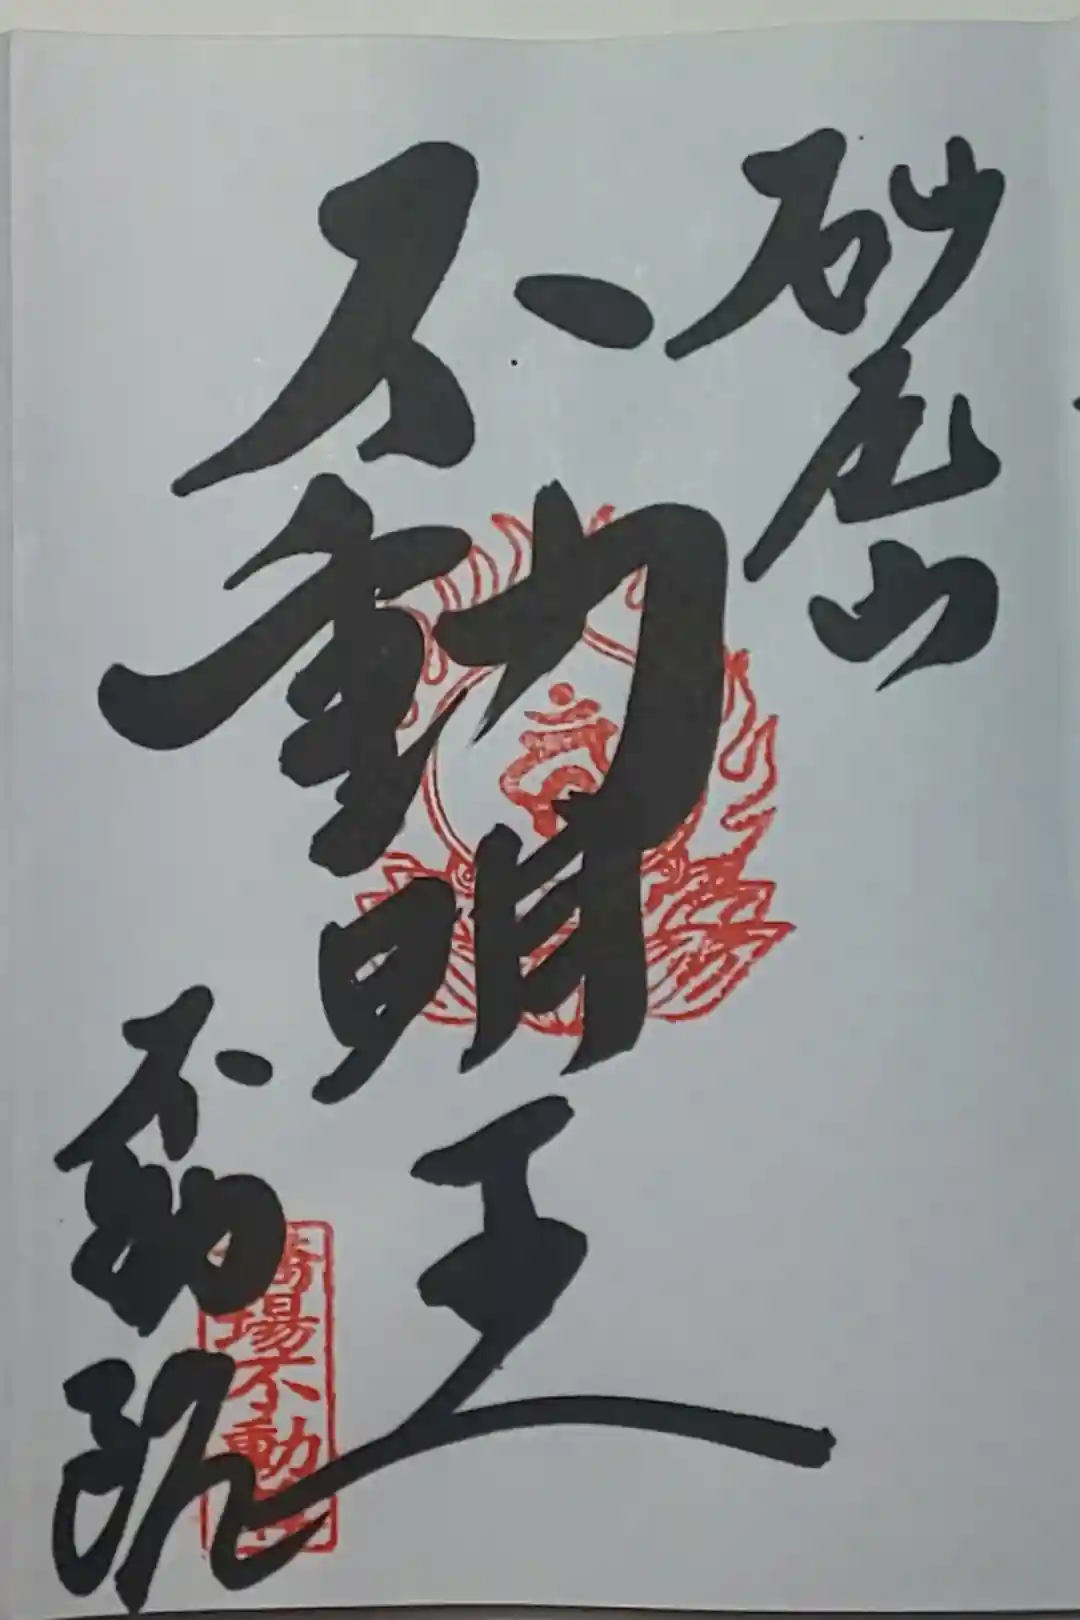 砂尾山
不動明王
不動院
橋場不動